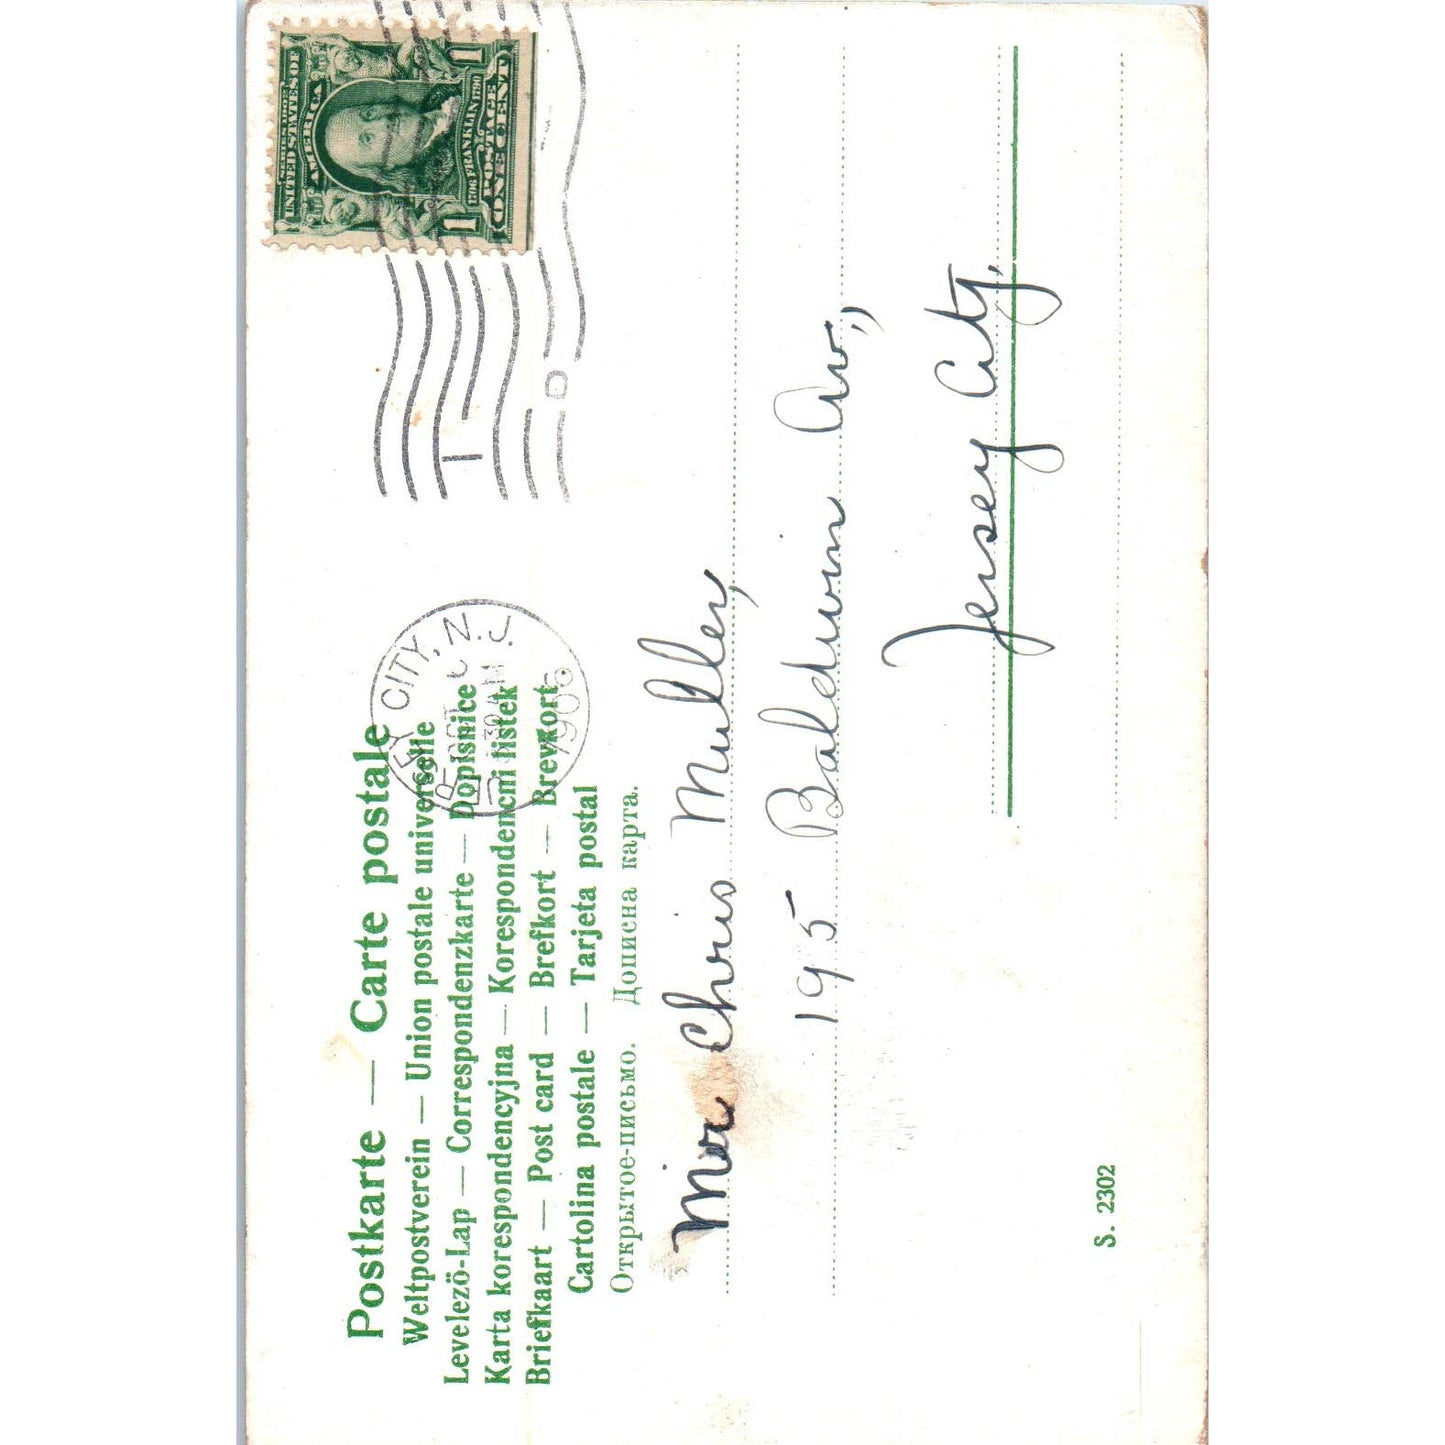 Postkarte — Carte postale
Weltpostverein — Union postale universelle
Levelezö-Lap — Correspondenzkarte — Dopisnice
Karta korespondencyjna — Korespondencni listek
Briefkaart — Post card — Brefkort — Brevkort
Cartolina postale — Tarjeta postal
Открытое-письмо. Дописна карта.
EY CITY, N.J.
1906
SERIES 1902
UNITED STATES OF
AMERICA
1706 FRANKLIN 1790
POSTAGE
1 ONE CENT 1
Chris Muller,
195 Baldwin Av.,
Jersey City.
S. 2302